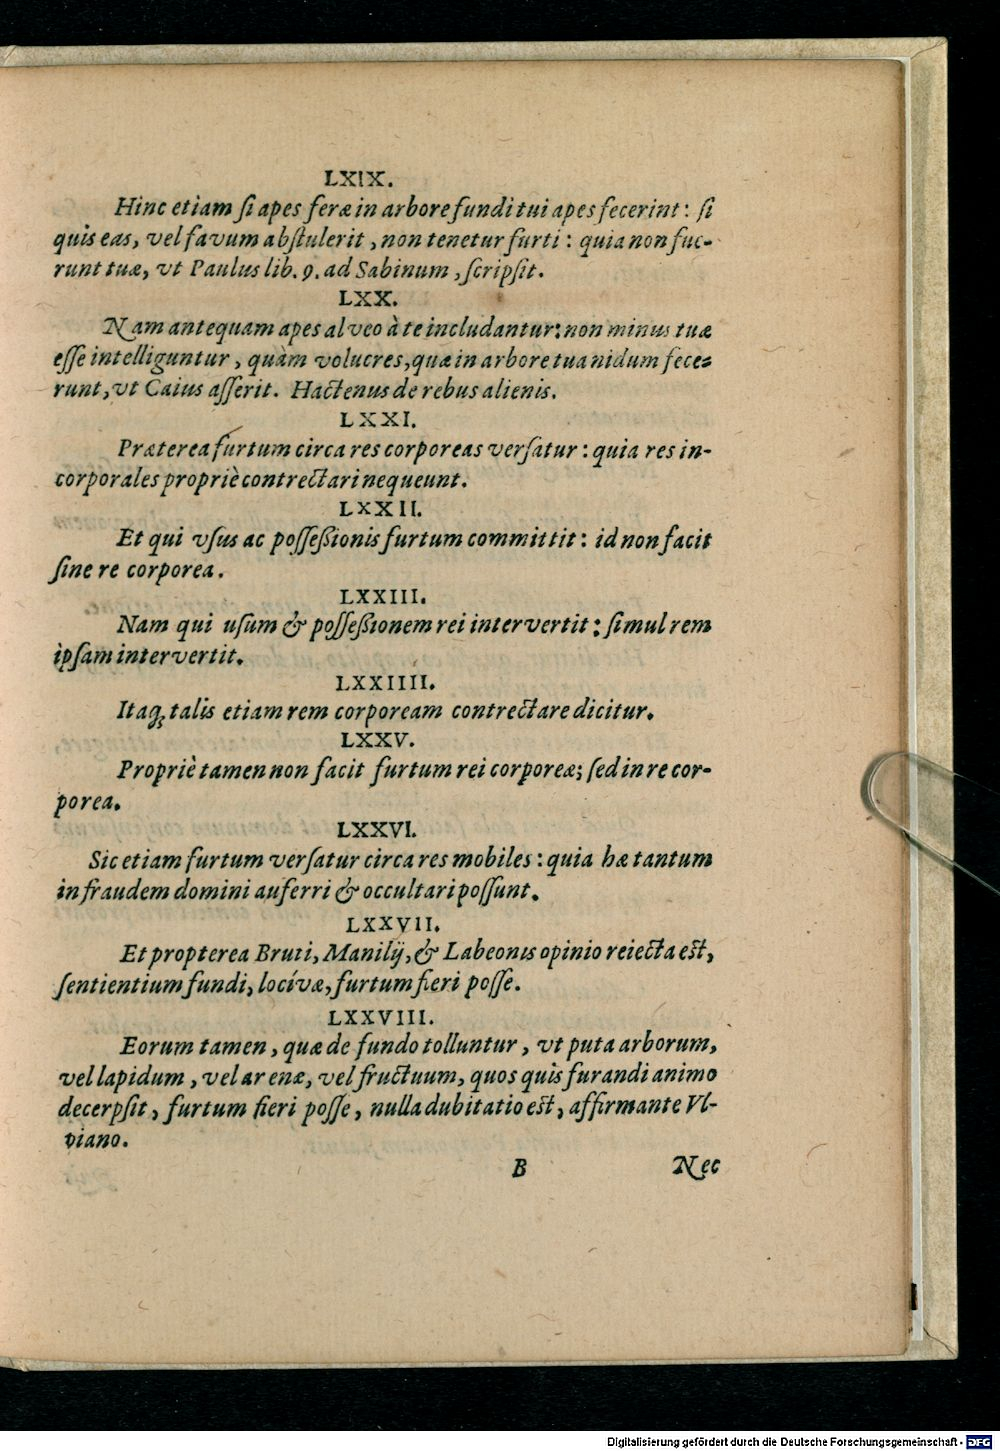 LXIX.
Hinc etiam ſi apes feræ in arbore fundi tui apes fecerint: ſi
quis eas, vel favum abſtulerit, non tenetur furti: quia non fue-
runt tuæ, vt Paulus lib. 9. ad Sabinum, ſcripſit.
LXX.
Nam antequam apes alveo à te includantur: non minus tuæ
eſſe intelliguntur, quàm volucres, quæ in arbore tua nidum fece-
runt, vt Caius aſſerit. Hactenus de rebus alienis.
LXXI.
Præterea furtum circa res corporeas verſatur: quia res in-
corporales propriè contrectari nequeunt.
LXXII.
Et qui vſus ac poſſeßionis furtum committit: id non facit
ſine re corporea.
LXXIII.
Nam qui uſum & poſſeßionem rei intervertit: ſimul rem
ipſam intervertit.
LXXIIII.
Itaq; talis etiam rem corpoream contrectare dicitur.
LXXV.
Propriè tamen non facit furtum rei corporeæ; ſed in re cor-
porea.
LXXVI.
Sic etiam furtum verſatur circa res mobiles: quia hæ tantum
in fraudem domini auferri & occultari poſſunt.
LXXVII.
Et propterea Bruti, Manilij, & Labeonis opinio reiecta eſt,
ſentientium fundi, locívæ, furtum fieri poſſe.
LXXVIII.
Eorum tamen, quæ de fundo tolluntur, vt puta arborum,
vel lapidum, vel arenæ, vel fructuum, quos quis furandi animo
decerpſit, furtum fieri poſſe, nulla dubitatio eſt, affirmante Vl-
piano.
B Nec
Digitalisierung gefördert durch die Deutsche Forschungsgemeinschaft - DFG